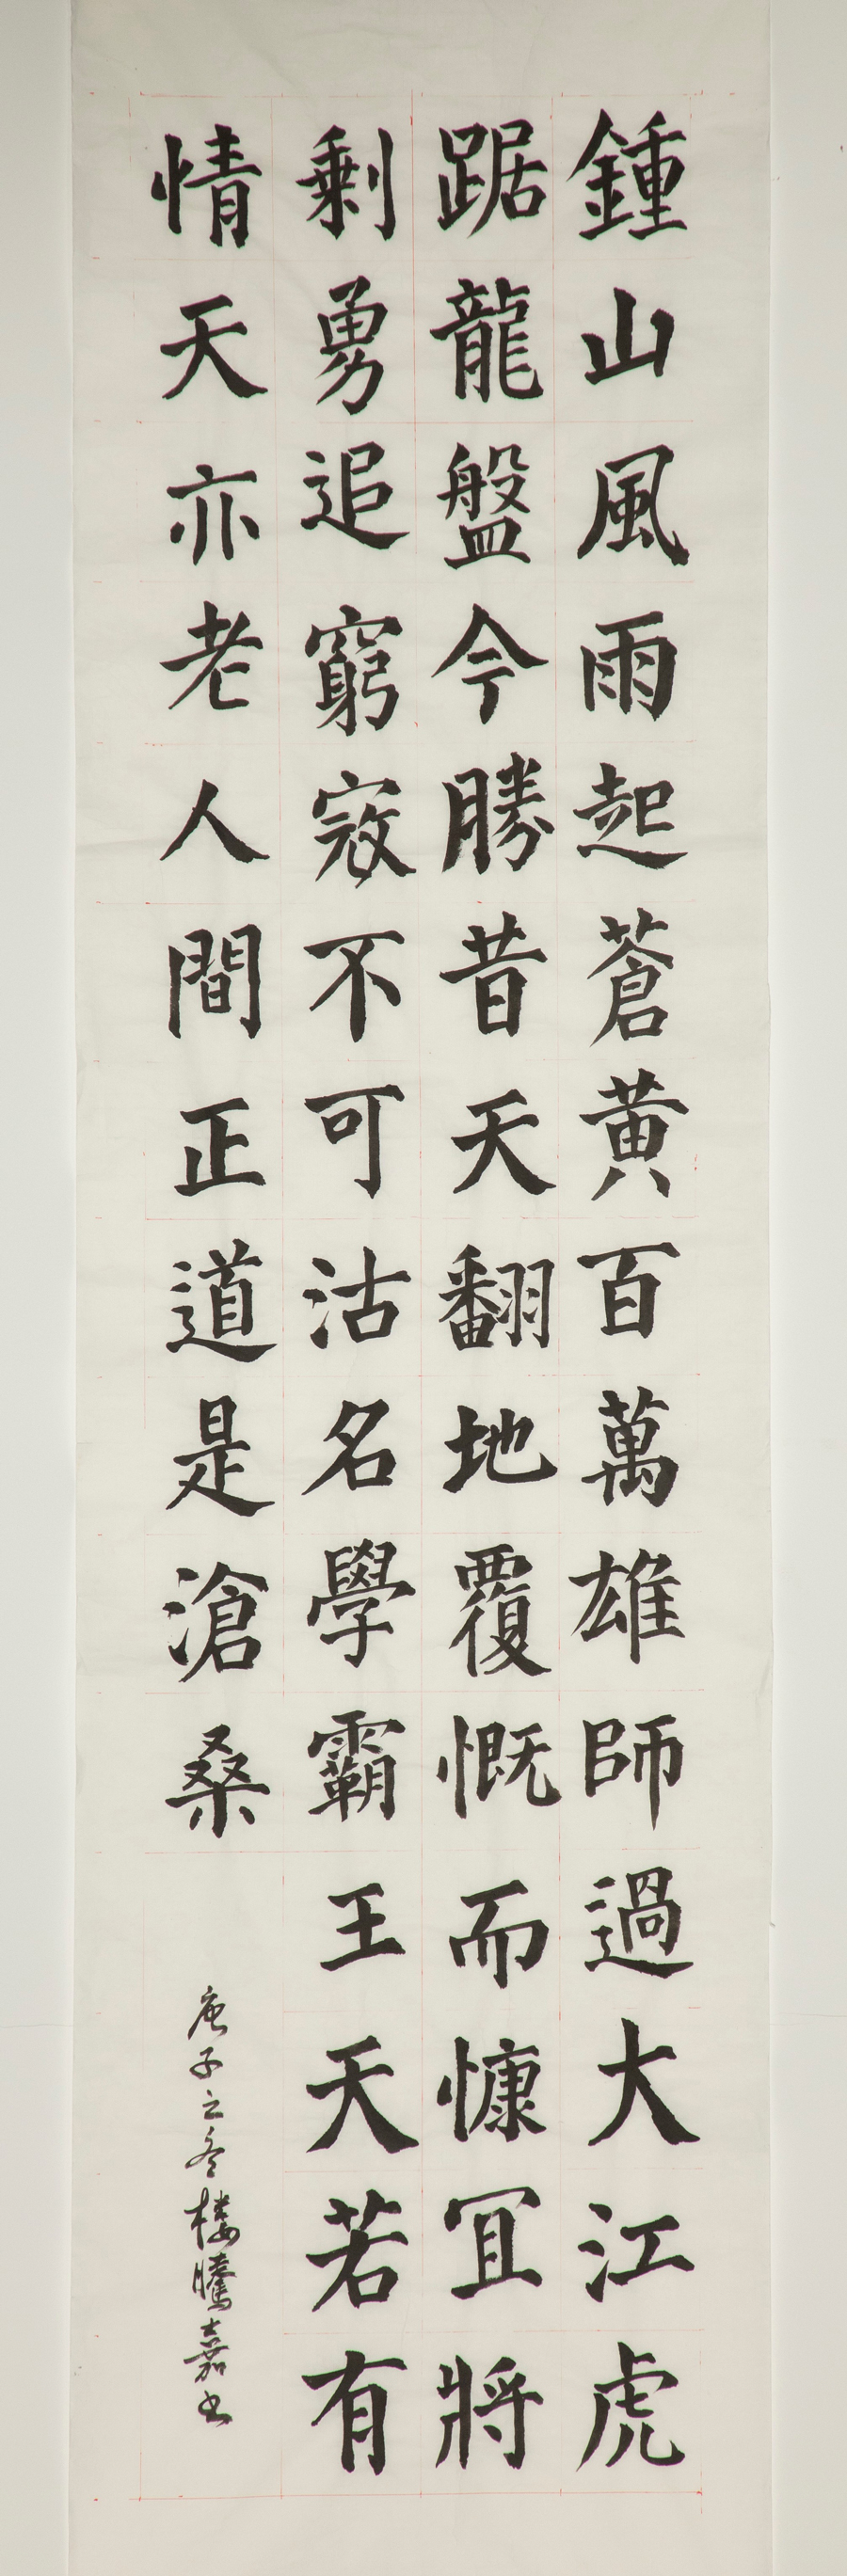 鍾山風雨起蒼黄百萬雄師過大江虎
踞龍盤今勝昔天翻地覆慨而慷冝將
剩勇追窮寇不可沽名學霸王天若有
情天亦老人間正道是滄桑
庚子之冬樓騰嘉书